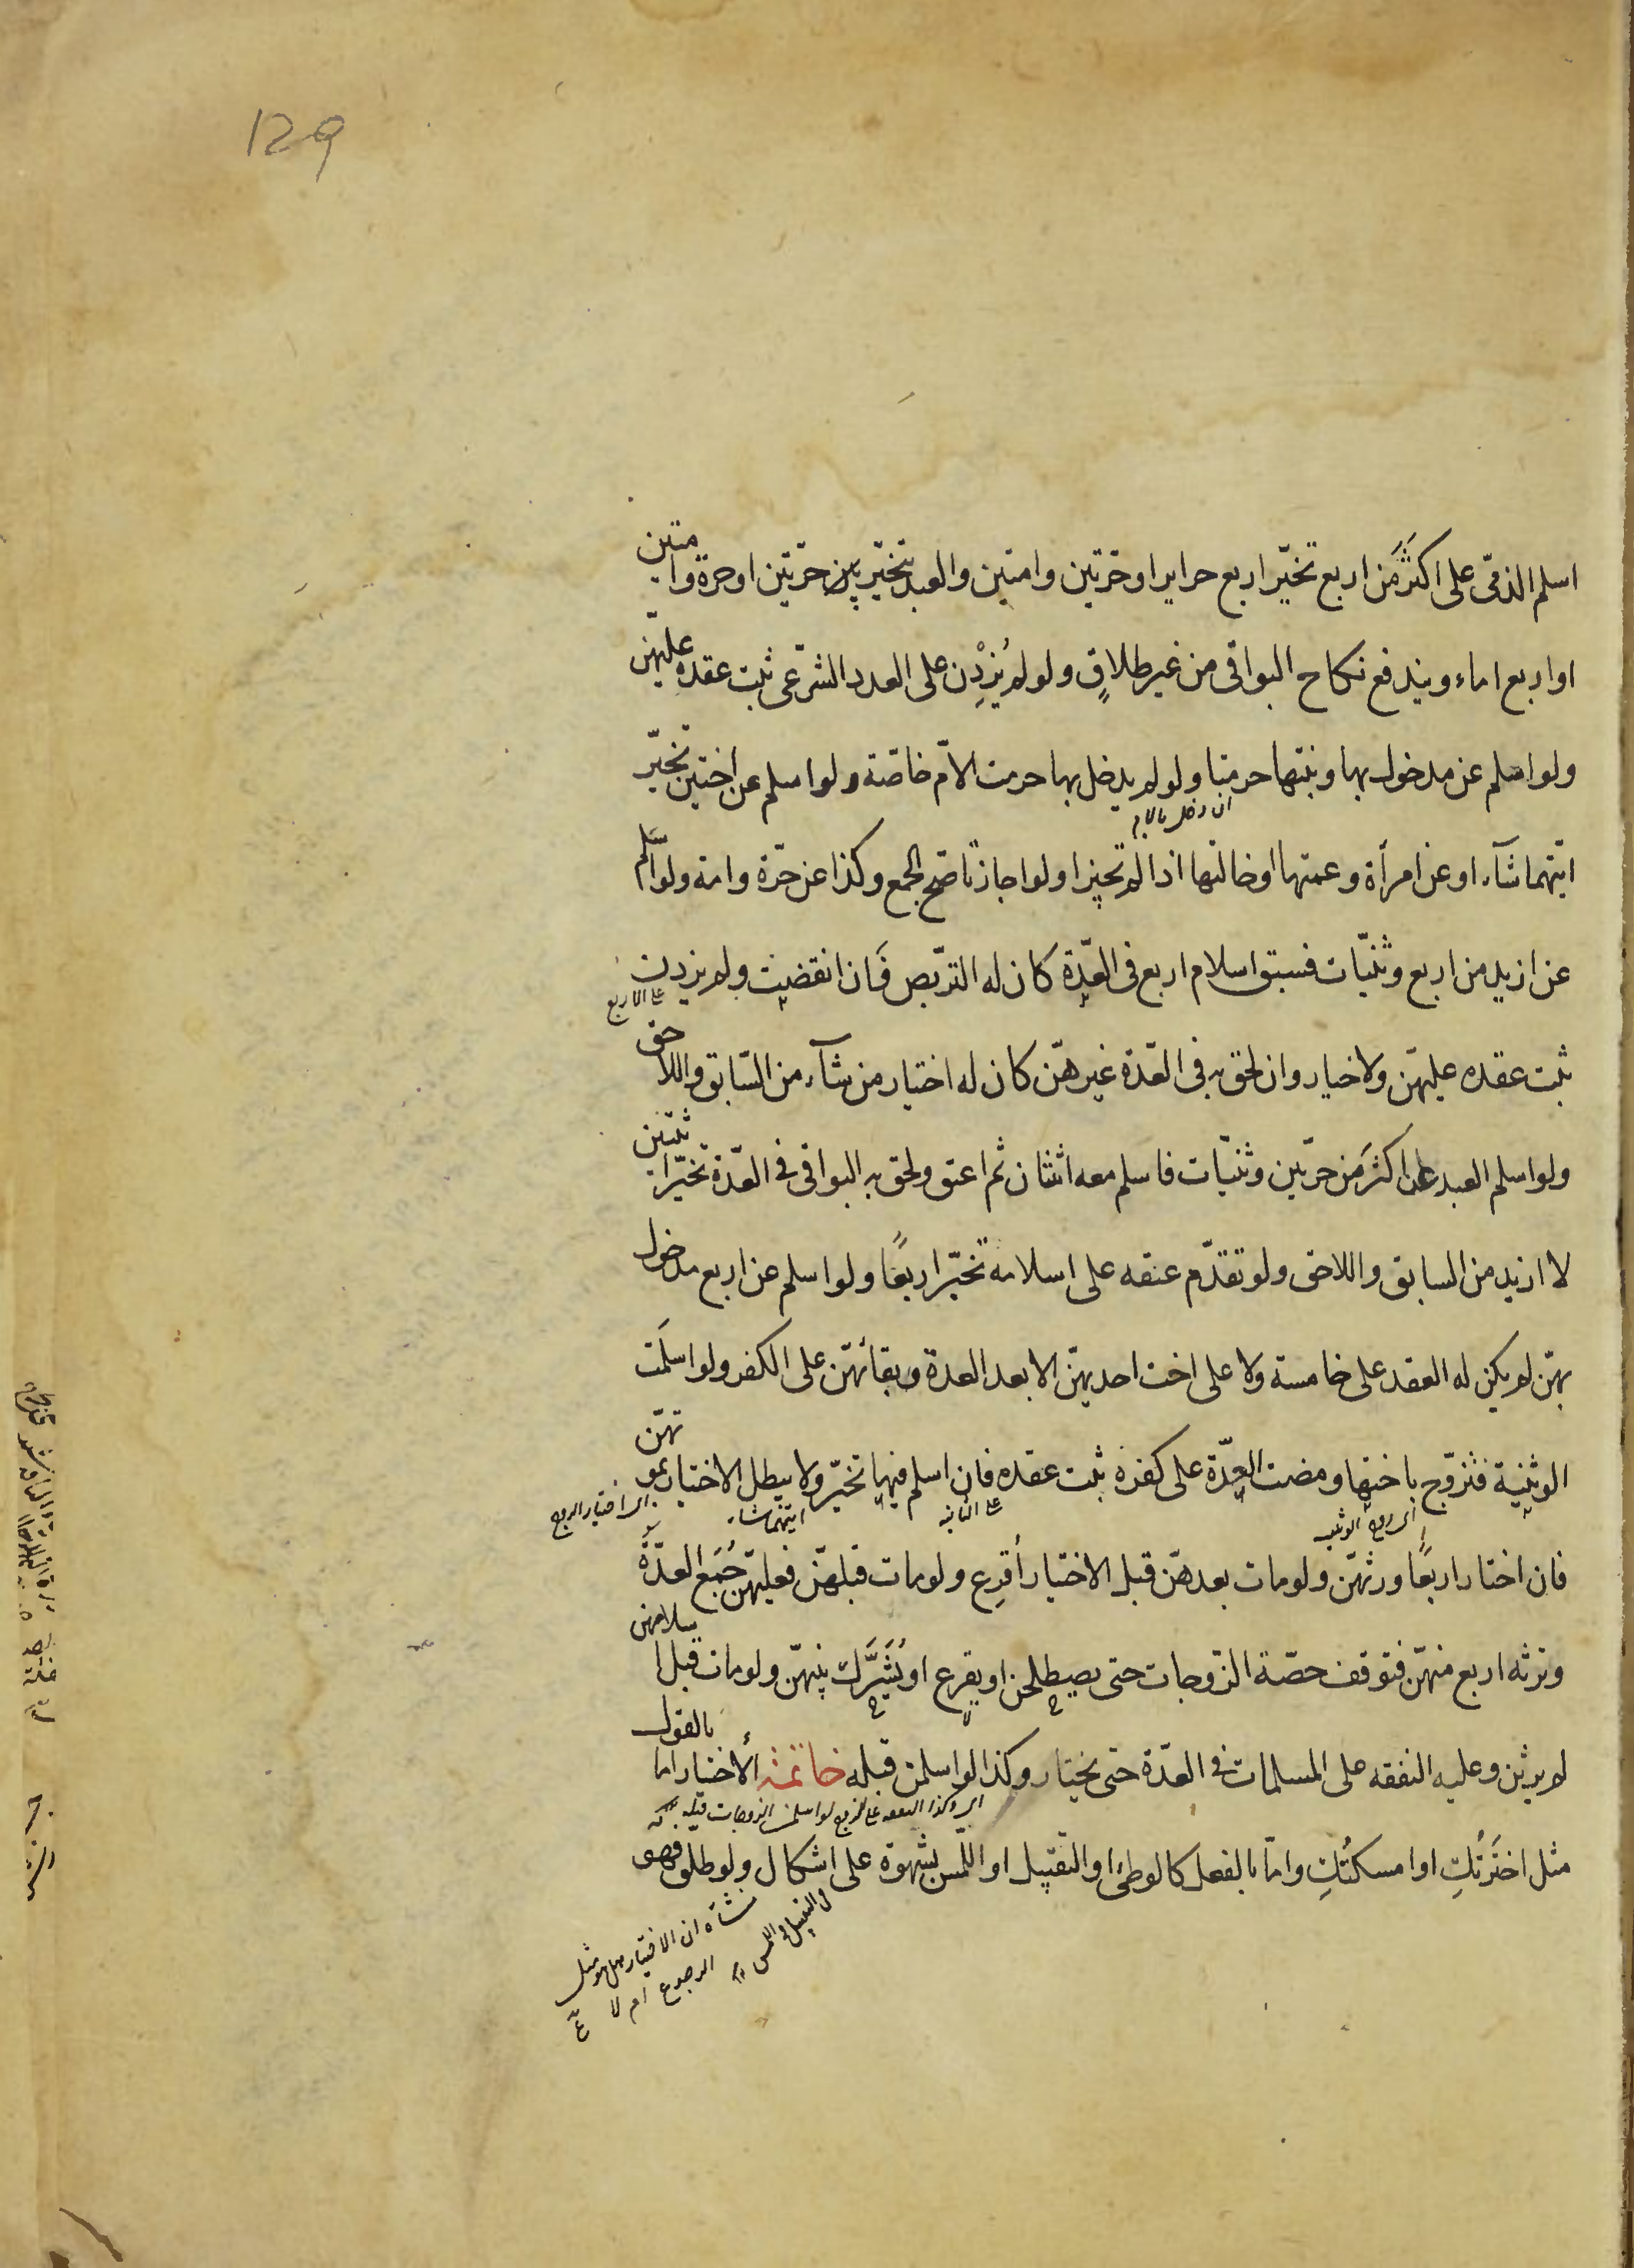 129
اسلم الذمّى على اكثَر مَن اربع تخيّر اربع حراير او حرّتين وامتين والعبد يتخيّر بين حرّتين او حرة وامتين
او اربع اماء ويندفع نكاح البواقى من غير طلاقٍ ولو لم يُزِدْن على العدد الشّرعى ثبت عقده عليهّن
ولو اسلم عن مدخول بها وبنتها حرمتا ولو لم يدخل بها حرمت الامّ خاصّة ولو اسلم عن اختين تخيّر
ان دخل بالام
ايّتهما شآء او عن امرأة وعمتها او خالتها اذا لم تجيزا ولو اجازتا صحّ الجمع وكذا عن حرّة وامة ولو اسَلم
عن ازيد من اربع وثنيّات فسبق اسلام اربع فى العدّة كان له التربّص فَان انقضيت ولم يزدن
على الاربع
ثبت عقده عليهّن ولا خيار وان لحق به فى العدّة غيرهّن كان له اختيار من شآء من السّابق واللاحق
ولو اسلم العبد على اكثَر مَن حرّتين وثنيّات فاسلم معه اثنتان ثم اعتق ولحق به البواقى فى العدّة تخيّر اثنتين
لا ازيد من السابق واللاحق ولو تقدّم عتقه على اسلامه تخيّر اربعًا ولو اسلم عن اربع مدخول
بهّن لم يكن له العقد على خامسة ولا على اخت احديهّن الا بعد العدة وبقائهّن على الكفر ولو اسلَمت
الوثنية فتزوّج باختها ومضت العدّة على كفره ثبت عقده فان اسلم فيها تخيّر ولا يبطل الاختيار بموتهّن
اى زوج الوثنيه
على الثانيه
ايتهما شاء
اى اختيار الزوج
فان اختار اربعًا ورثهّن ولو مات بعدهّن قبل الاختيار أقرِع ولو مات قبلهّن فعليهّن جُمَع العدّة
وترثه اربع منهّن فتوقف حصّة الزّوجات حتى يصطلحن او يقرع او يُشَرَّك بينهّن ولو مات قبل اسلامهن
لم يرثن وعليه النفقه على المسلمات فى العدّة حتى يختار وكذا لو اسلمن قبله خاتمة الأختيار اما بالقول
اى وكذا النفقه على الزوج لو اسلمن الزوجات قبله
مثل اختَرتُكِ او امسكتُكِ وامّا بالفعل كالوطئ او التقبيل او اللّمس بشهوة على اشكال ولو طلق فهو
فى التقبيل واللمس
منشآه ان الاختيار هل هو مثل
الرجوع ام لا